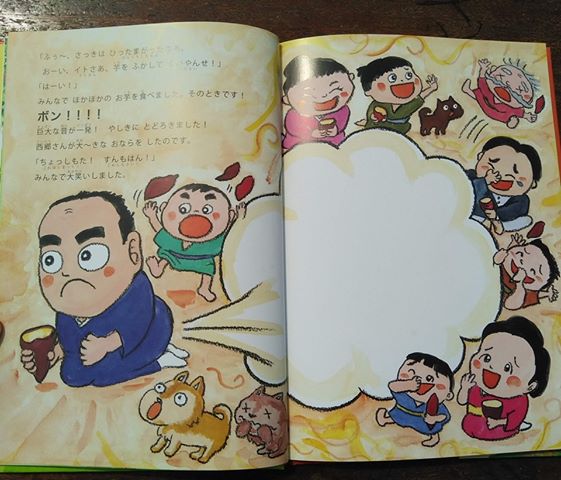 「ふぅ〜、さっきは ひったまがったなぁ。
おーい、イトさあ、芋を ふかして
「はーい！」
みんなで ほかほかの お芋を食べました。そのときです！
ボン！！！！
巨大な音が一発！ やしきに とどろきました！
西郷さんが大〜きな おならを したのです。
「ちょっしもた！ すんもはん！」
みんなで大笑いしました。